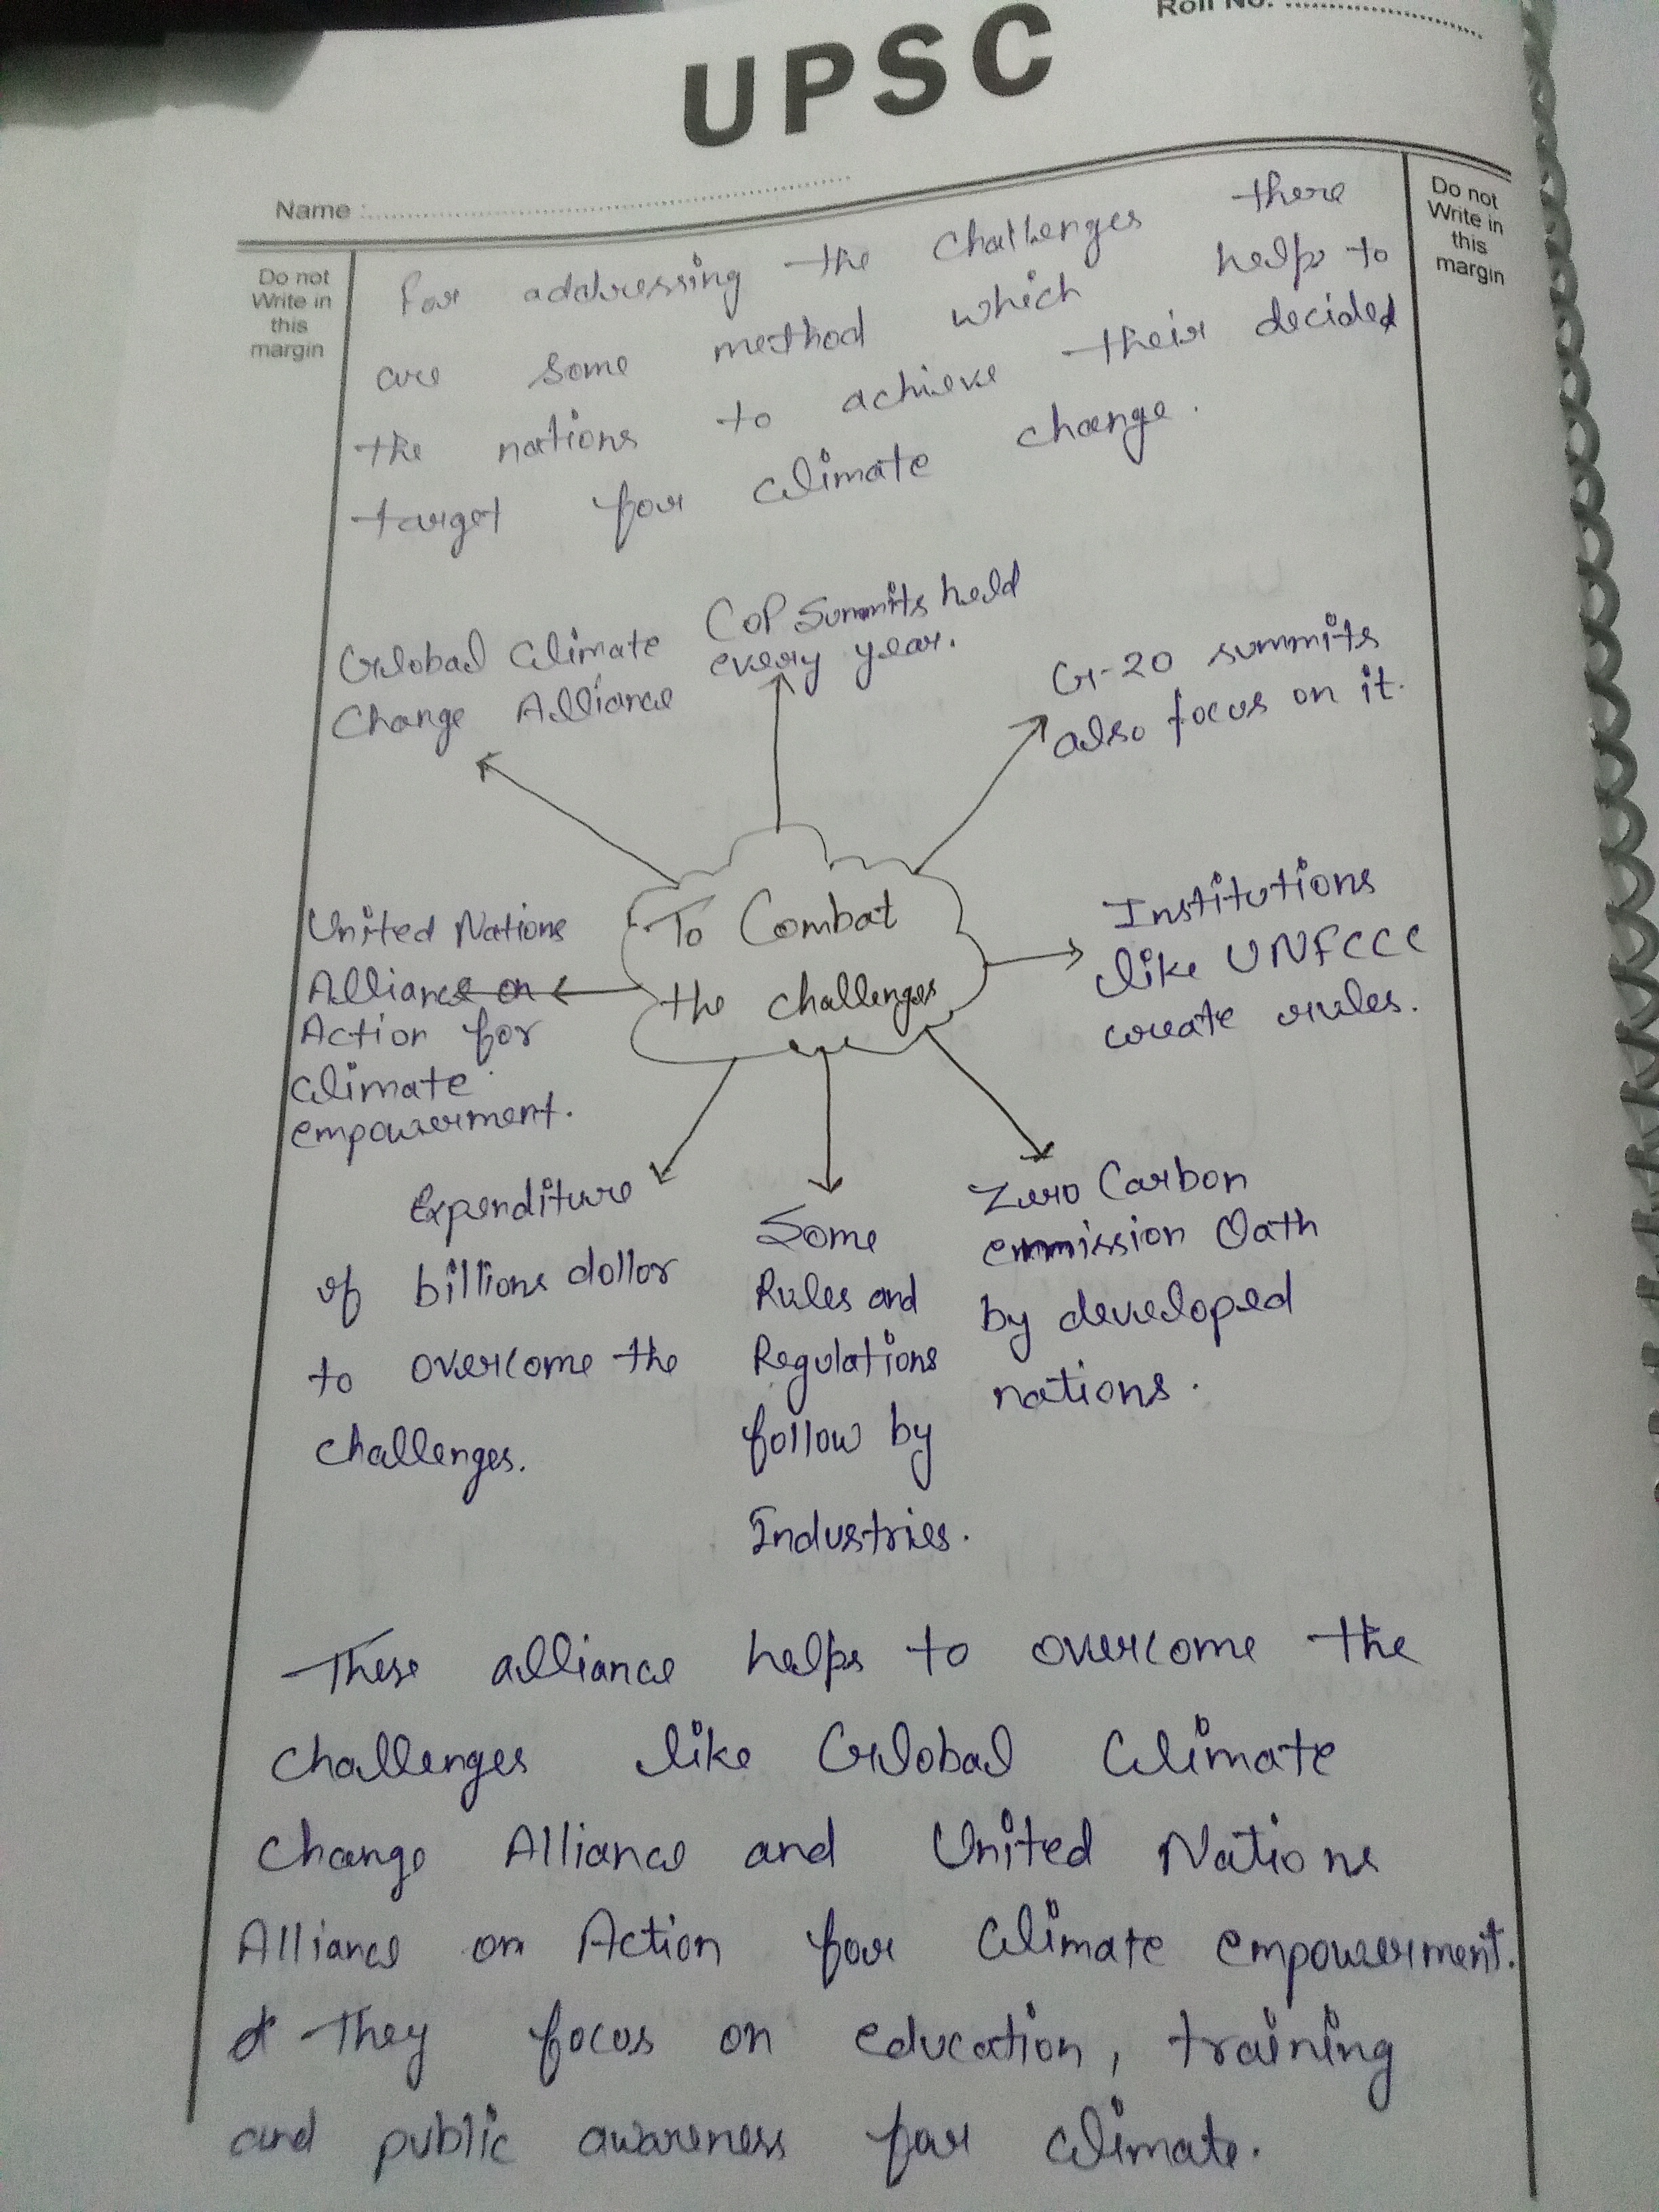 Roll No. ..............................
UPSC
Name :..............................
Do not
Write in
this
margin
Do not
Write in
this
margin
For addressing the challenges there
are some method which helps to
the nations to achieve their decided
target for climate change.
Global Climate
Change Alliance
COP Summits held
every year.
G-20 summits
also focus on it.
United Nations
Alliance on
Action for
climate
empowerment.
To Combat
the challenges
Institutions
like UNFCCC
create rules.
Expenditure
of billions dollar
to overcome the
challenges.
Some
Rules and
Regulations
follow by
Industries.
Zero Carbon
emmission Oath
by developed
nations.
These alliance helps to overcome the
challenges like Global Climate
Change Alliance and United Nations
Alliance on Action for Climate empowerment.
They focus on education, training
and public awareness for climate.